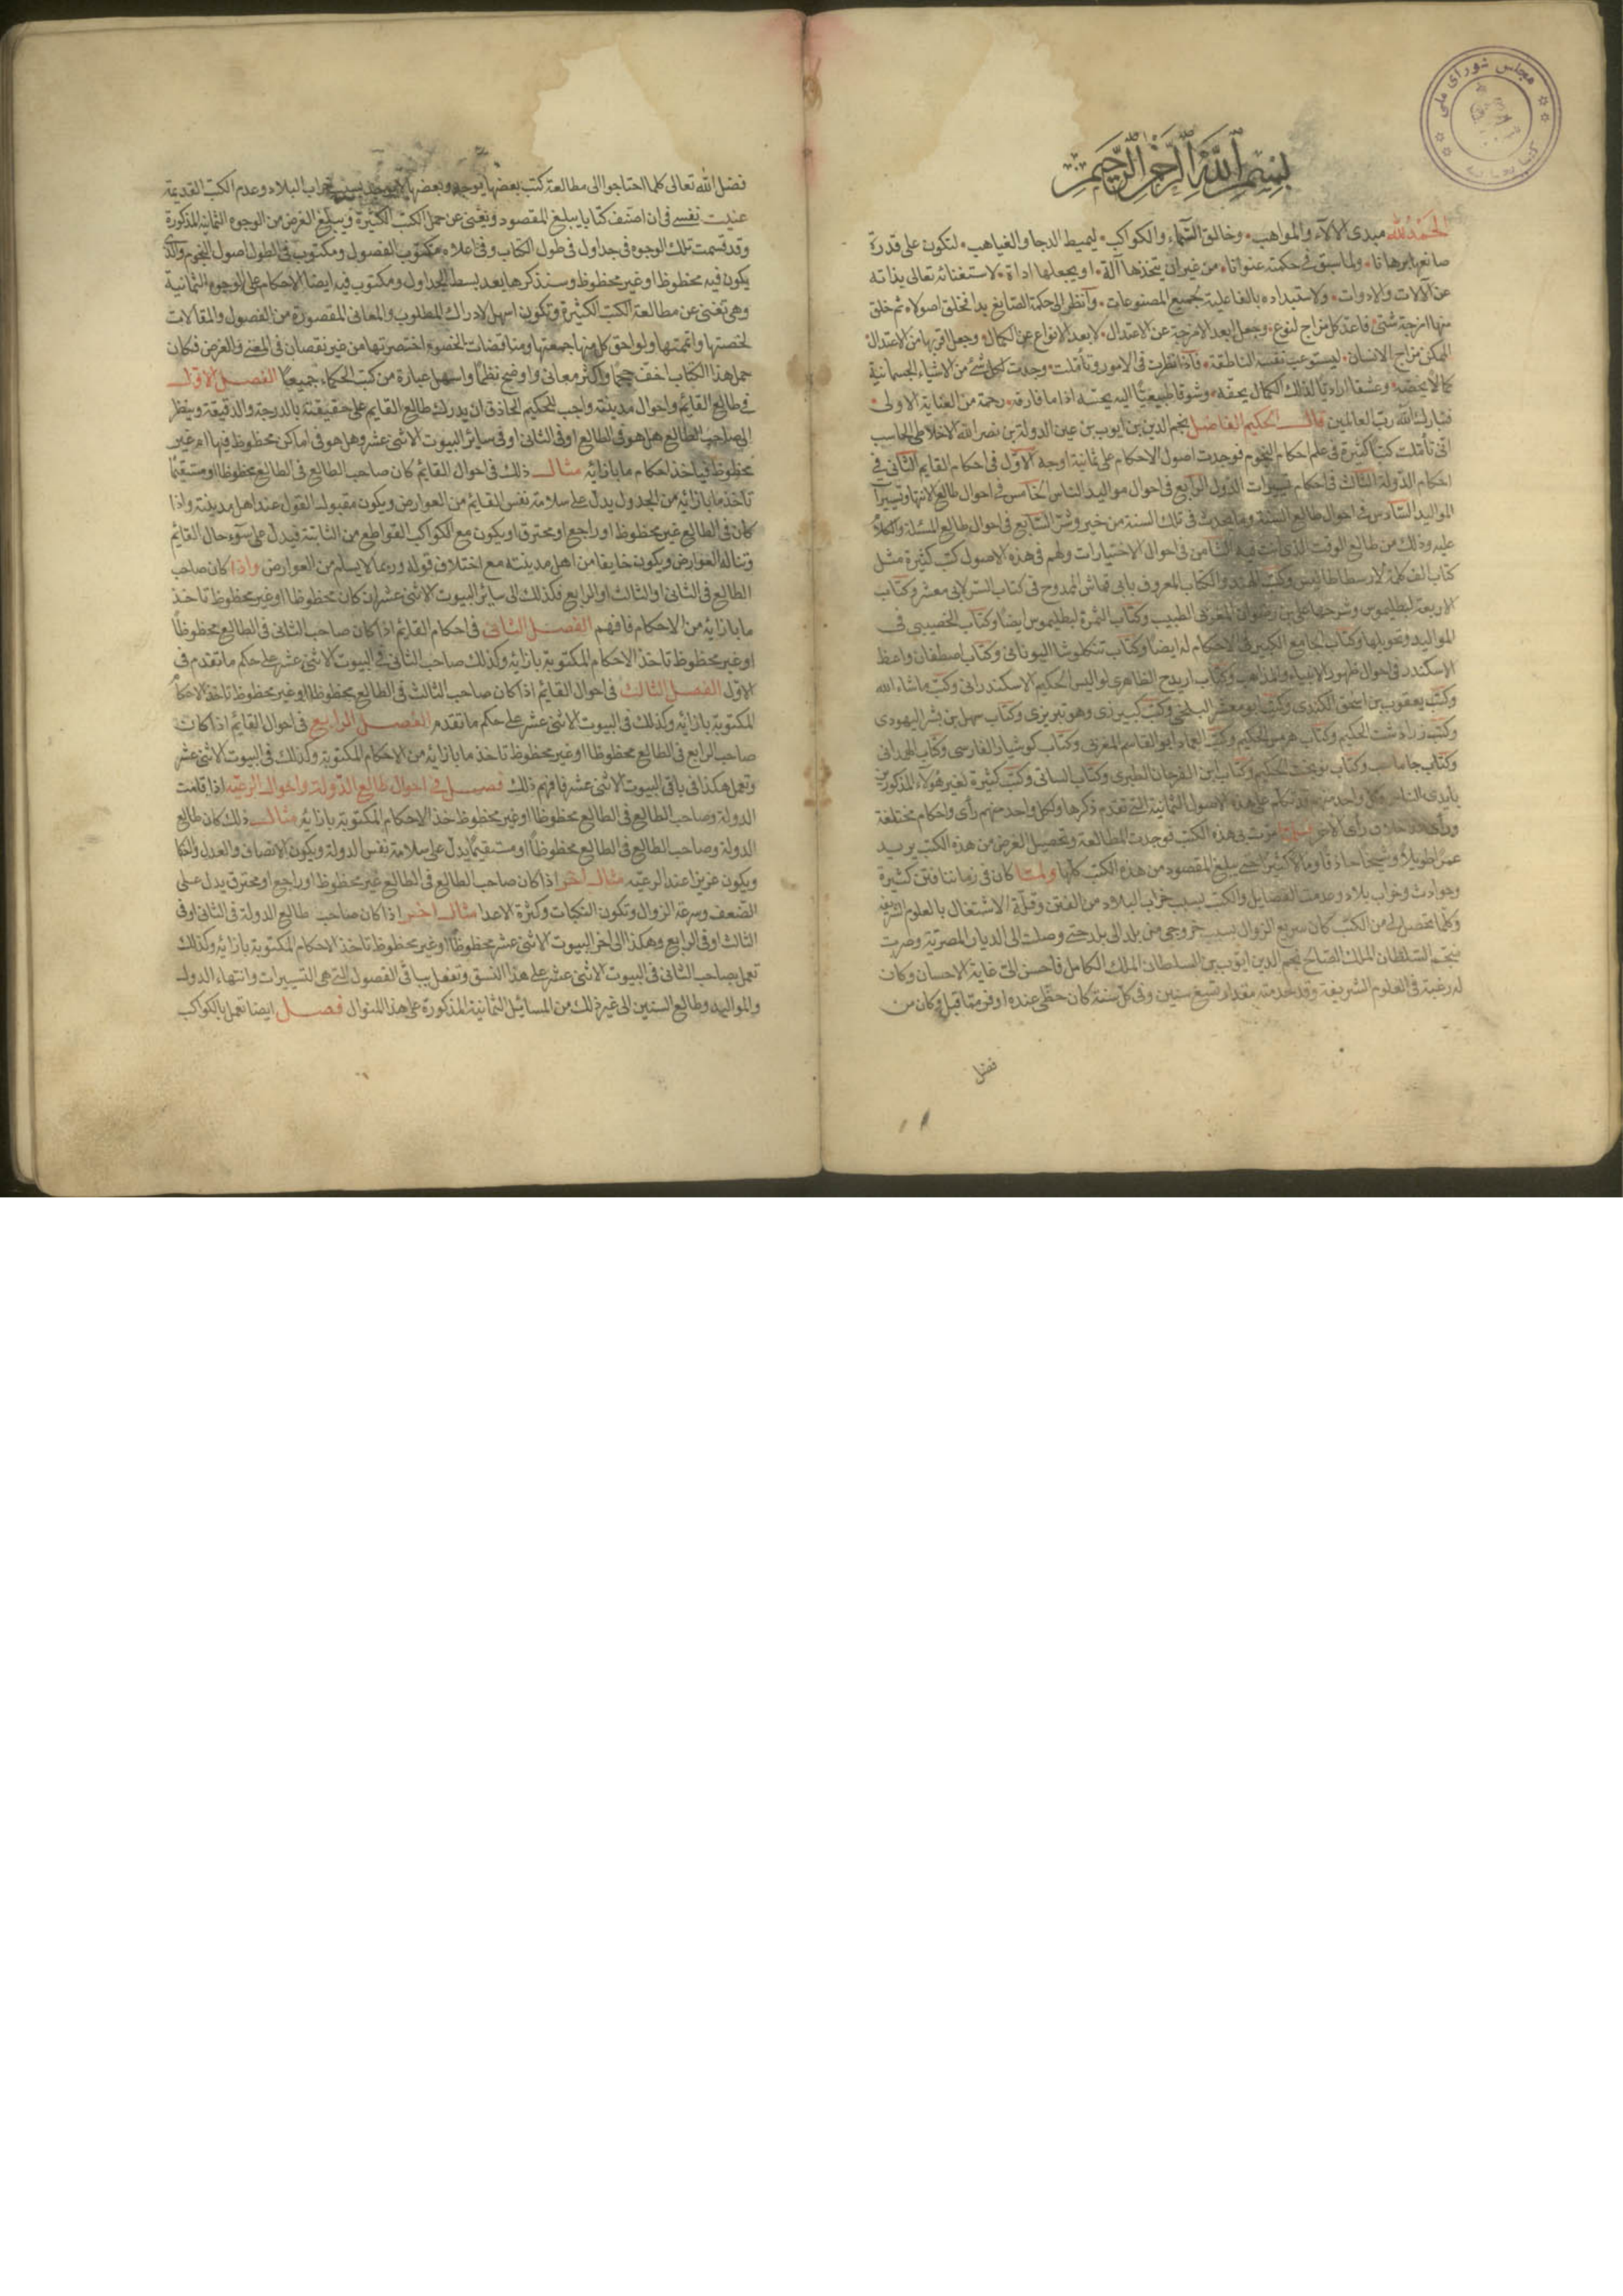 مجلس شورای ملی
بسم الله الرحمن الرحيم
الحمد لله مبدى الآلاء والمواهب وخالق السماء والكواكب ليميط الدجا والغياهب لتكون على قدرة
صانعها برهانا ولما سبق فى حكمته عنوانا من غير ان يتخذها آلة او يجعلها اداة لاستغنائه تعالى بذاته
عن الآلات والادوات ولاستبداده بالفاعلية لجميع المصنوعات وانظر الى حكمة الصانع بدا فخلق اصولا ثم خلق
منها امزجة شتى فاعد كل مزاج لنوع وجعل ابعد الامزجة عن الاعتدال لابعد الانواع عن الكمال وجعل اقربها من الاعتدال
الممكن مزاج الانسان ليستوعب نفسه الناطقة فاذا نظرت فى الامور وتأملت وجدت لكل شئ من الاشياء الجسمانية
كمالا يخصه وعشقا اراديا لذلك الكمال يحفه وشوقا طبيعيا اليه يحثه اذا ما فارقه رحمة من العناية الاولى
فتبارك الله رب العالمين قال الحكيم الفاضل نجم الدين بن ايوب بن عين الدولة بن نصر الله الاخلاطى الحاسب
انى تأملت كتبا كثيرة فى علم احكام النجوم فوجدت اصول الاحكام على ثمانية اوجه الاول فى احكام القايم الثانى فى
احكام الدولة الثالث فى احكام تسييرات الدول الرابع فى احوال مواليد الناس الخامس فى احوال طالع الانتها وتسييرا
المواليد السادس فى احوال طالع السنة وما يحدث فى تلك السنة من خير وشر السابع فى احوال طالع المسئلة والكلام
عليه وذلك من طالع الوقت الذى انت فيه الثامن فى احوال الاختيارات ولهم فى هذه الاصول كتب كثيرة مثل
كتاب الف كلمة لارسطاطاليس وكتب الهند والكتاب المعروف بابى قماش الممدوح فى كتاب السر لابى معشر وكتاب
الاربعة لبطليموس وشرحها على بن رضوان المغربى الطبيب وكتاب الثمرة لبطليموس ايضا وكتاب الخصيبى فى
المواليد وتحويلها وكتاب الجامع الكبير فى الاحكام له ايضا وكتاب تنكلوشا اليونانى وكتاب اصطفان واعظ
الاسكندر فى احوال ظهور الانبياء والمذاهب وكتاب اريدح الظاهرى لواليس الحكيم الاسكندرانى وكتب ماشاء الله
وكتب يعقوب بن اسحق الكندى وكتب ابو معشر البلخى وكتب وهو تبريزى وكتاب سهل بن بشر اليهودى
وكتب زرادشت الحكيم وكتاب هرمس الحكيم وكتب العماد ابو القاسم المغربى وكتاب كوشيار الفارسى وكتاب الهمدانى
وكتاب جاماسب وكتاب نوبخت الحكيم وكتاب ابن الفرخان الطبرى وكتاب السانى وكتب كثيرة لغير هؤلاء المذكورين
بايدى الناس وكل واحد منهم قد تكلم على هذه الاصول الثمانية التى تقدم ذكرها ولكل واحد منهم رأى واحكام مختلفة
ورأى خلاف رأى الآخر فى هذه الكتب فوجدت المطالعة وتحصيل الغرض من هذه الكتب يريد
عمرا طويلا وشيخا حاذقا ومالا كثيرا حتى يبلغ المقصود من هذه الكتب كلها ولما كان فى زماننا فتن كثيرة
وحوادث وخراب بلاد وعدمت الفضايل والكتب بسبب خراب البلاد من الفتن وقلة الاشتغال بالعلوم الشريفة
وكلما تحصل لى من الكتب كان سريع الزوال بسبب خروجى من بلد الى بلد حتى وصلت الى الديار المصرية وصرت
منجم السلطان الملك الصالح نجم الدين ايوب بن السلطان الملك الكامل فاحسن الىّ غاية الاحسان وكان
له رغبة فى العلوم الشريفة وقد خدمته مقدار تسع سنين وفى كل سنة كان حظى عنده اوفر مما قبل وكان من
فضل
فضل الله تعالى كلما احتاجوا الى مطالعة كتب بعضها يوجد وبعضها لا يوجد بسبب خراب البلاد وعدم الكتب القديمة
عنيت نفسى فى ان اصنف كتابا يبلغ المقصود ويغنى عن حمل الكتب الكثيرة ويبلغ الغرض من الوجوه الثمانية المذكورة
وقد قسمت تلك الوجوه فى جداول فى طول الكتاب وفى اعلاه مكتوب الفصول ومكتوب فى الطول اصول النجوم والذى
يكون فيه محظوظا او غير محظوظ وسنذكرها بعد بسط الجداول ومكتوب فيه ايضا الاحكام على الوجوه الثمانية
وهى تغنى عن مطالعة الكتب الكثيرة وتكون اسهل لادراك المطلوب والمعانى المقصورة من الفصول والمقالات
لخصتها واتممتها ولواحق كل منها جمعتها ومناقضات الخصوم اختصرتها من غير نقصان فى المعنى والغرض فكان
حمل هذا الكتاب اخف حجما واكثر معانى واوضح نظما واسهل عبارة من كتب الحكماء جميعا الفصل الاول
فى طالع القايم واحوال مدينته واجب للحكيم الحاذق ان يدرك طالع القايم على حقيقته بالدرجة والدقيقة وينظر
الى صاحب الطالع هل هو فى الطالع او فى الثانى او فى ساير البيوت الاثنى عشر وهل هو فى اماكن محظوظ فيها ام غير
محظوظ فيأخذ احكام ما بازائه مثال ذلك فى احوال القايم كان صاحب الطالع فى الطالع محظوظا او مستقيما
تأخذ ما بازائه من الجدول يدل على سلامة نفس القايم من العوارض ويكون مقبول القول عند اهل مدينته واذا
كان فى الطالع غير محظوظ او راجع او محترق او يكون مع الكواكب القواطع من الثابتة فيدل على سوء حال القايم
وتناله العوارض ويكون خايفا من اهل مدينته مع اختلاف قوله وربما لا يسلم من العوارض واذا كان صاحب
الطالع فى الثانى او الثالث او الرابع فكذلك الى ساير البيوت الاثنى عشر ان كان محظوظا او غير محظوظ تاخذ
ما بازائه من الاحكام فافهم الفصل الثانى فى احكام القايم اذا كان صاحب الثانى فى الطالع محظوظا
او غير محظوظ تاخذ الاحكام المكتوبة بازائه وكذلك صاحب الثانى فى البيوت الاثنى عشر على حكم ما تقدم فى
الاول الفصل الثالث فى احوال القايم اذا كان صاحب الثالث فى الطالع محظوظا او غير محظوظ تاخذ الاحكام
المكتوبة بازائه وكذلك فى البيوت الاثنى عشر على حكم ما تقدم الفصل الرابع فى احوال القايم اذا كان
صاحب الرابع فى الطالع محظوظا او غير محظوظ تاخذ ما بازائه من الاحكام المكتوبة وكذلك فى البيوت الاثنى عشر
وتعمل هكذا فى باقى البيوت الاثنى عشر فافهم ذلك فصل فى احوال طالع الدولة واحوال الرعية اذا قامت
الدولة وصاحب الطالع فى الطالع محظوظا او غير محظوظ خذ الاحكام المكتوبة بازائه مثال ذلك كان طالع
الدولة وصاحب الطالع فى الطالع محظوظا او مستقيما يدل على سلامة نفس الدولة ويكون الانصاف والعدل
ويكون عزيزا عند الرعية مثال آخر اذا كان صاحب الطالع فى الطالع غير محظوظ او راجع او محترق يدل على
الضعف وسرعة الزوال وتكون النكبات وكثرة الاعدا مثال اخر اذا كان صاحب طالع الدولة فى الثانى او فى
الثالث او فى الرابع وهكذا الى اخر البيوت الاثنى عشر محظوظا او غير محظوظ تاخذ الاحكام المكتوبة بازائه وكذلك
تعمل بصاحب الثانى فى البيوت الاثنى عشر على هذا النسق وتفعل بباقى الفصول التى هى التسييرات وانتهاء الدول
والمواليد وطالع السنين الى غير ذلك من المسائل الثمانية المذكورة على هذا المنوال فصل ايضا تعمل بالكواكب